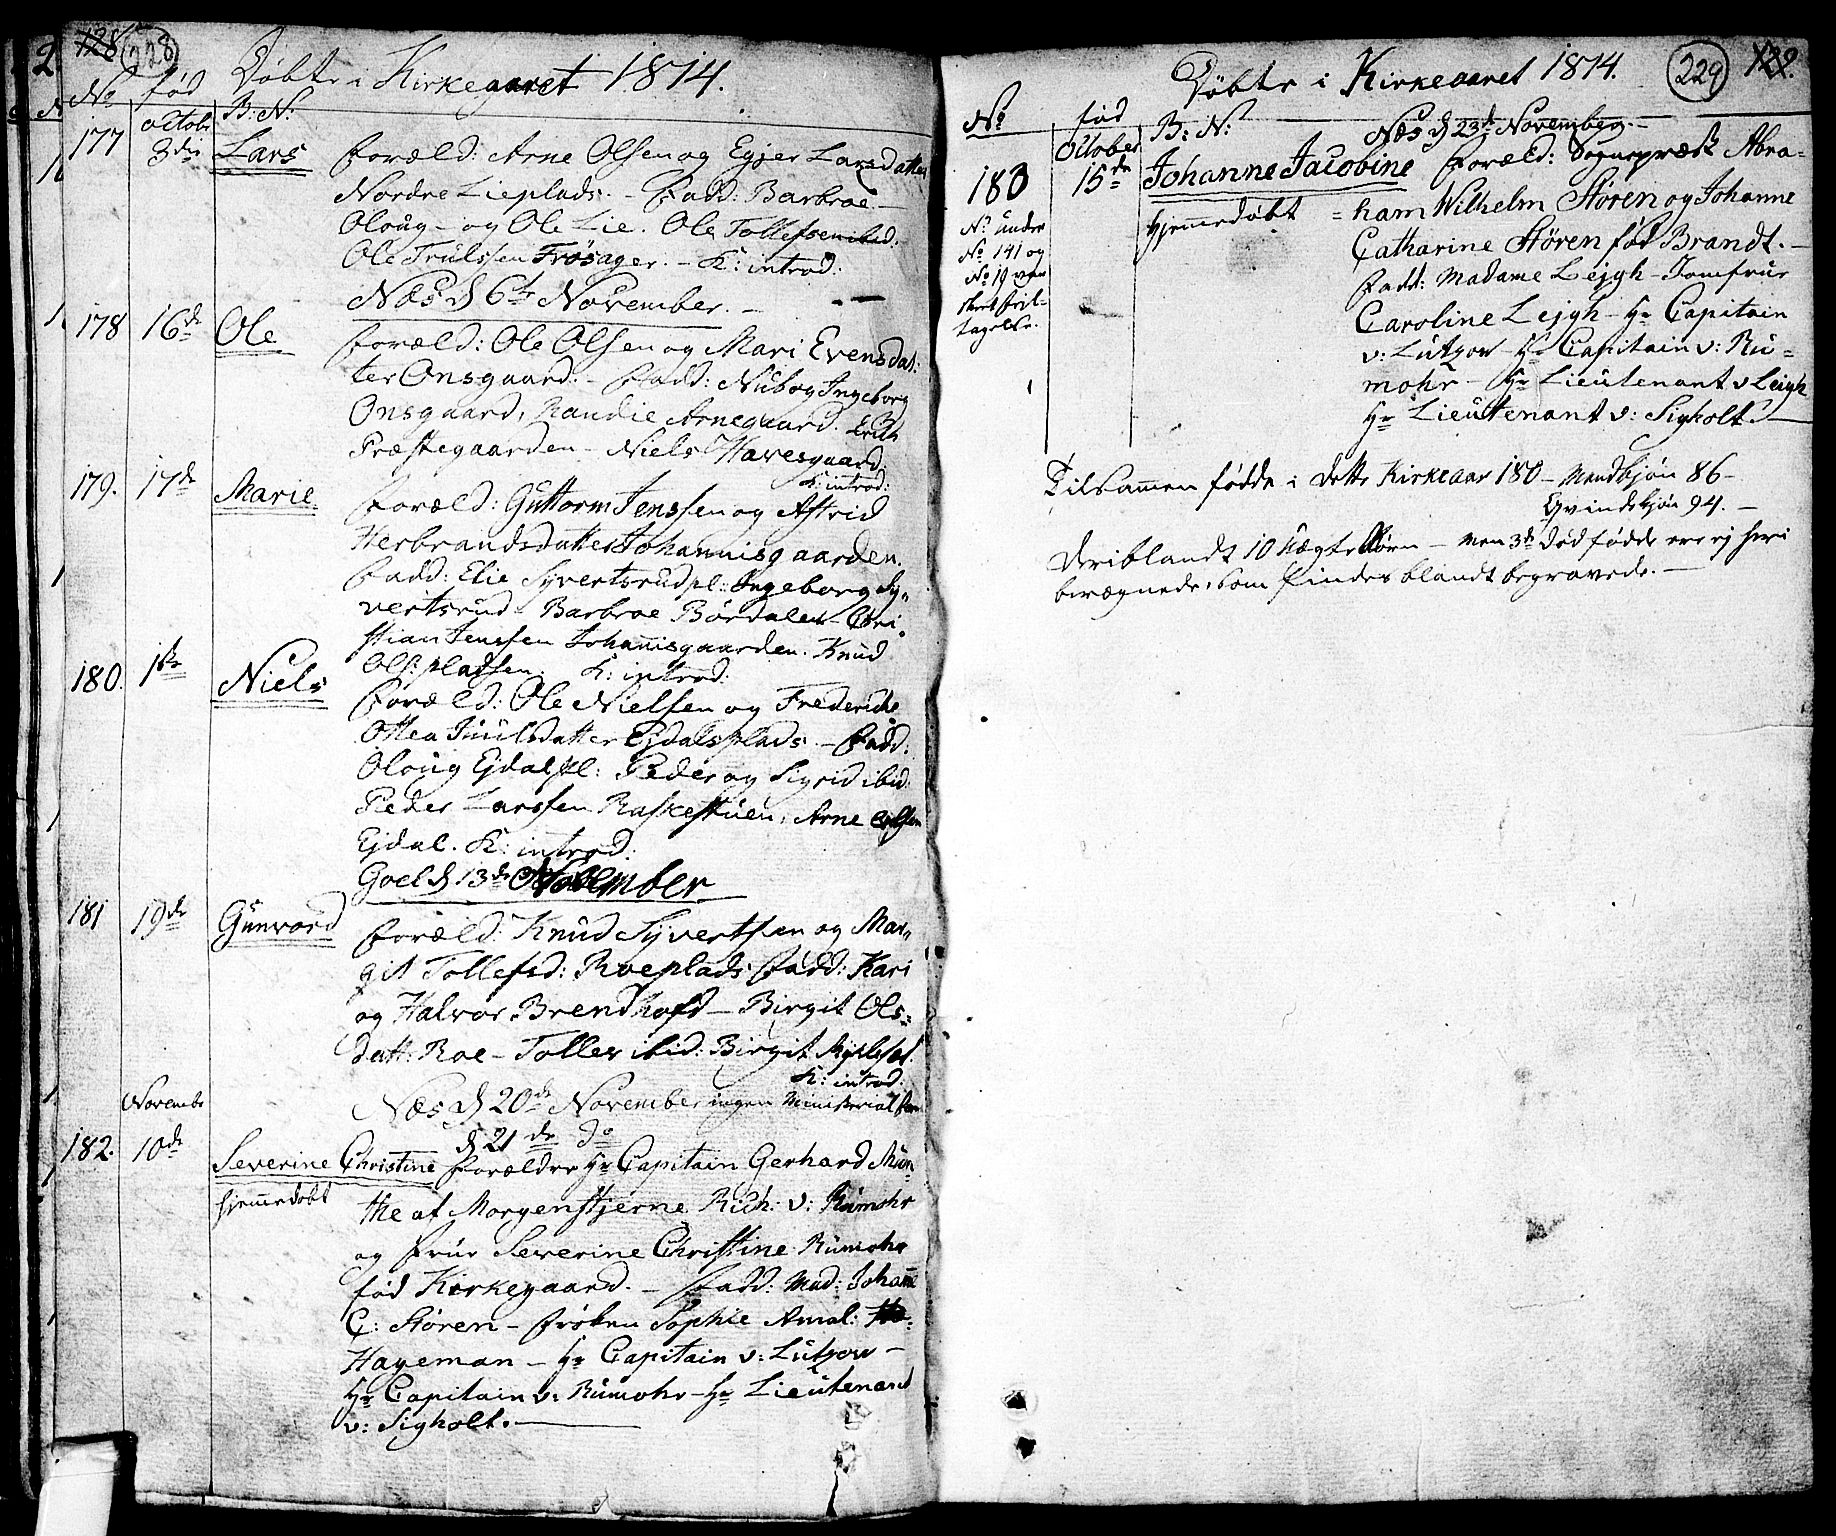 128 228
Døbte i Kirkeaaret 1814.
No fød B: N:
octobr
177 3die Lars Foræld: Arne Olsen og Egjer Larsdatter
Nordre Lieplads. - Fadd: Barbroe -
Oloug - og Ole Lie. Ole Tollefsen ibid.
Ole Trulssen Frøsager. - K: introd:
Næs d 6te November. -
178 16de Ole Foræld: Ole Olsen og Mari Evensdat:
ter Onsgaard. - Fadd: Ingeborg
Onsgaard, Randie Arnegaard. Erich
Præstegaarden - Niels Havesgaard
K: introd:
179. 17de Marie Foræld: Guttorm Jenssen og Astrid
Herbrandsdatter Johannisgaarden.
Fadd: Elie Syvertsrudpl: Ingeborg Sy„
vertsrud - Barbroe Børdalen - Chri„
stian Jenssen Johannisgaarden. Knud
Ols: pladsen. K: introd:
180. 1ste Niels Foræld: Ole Nielsen og Frederiche
Othea Juulsdatter Ejdalsplads - Fadd:
Oloug Ejdalspl: Peder og Sigrid ibid:
Peder Larssen Raskestuen, Arne Olsen
Ejdal. K: introd:
Goel d 13de November
181 19de Gunvord Foræld: Knud Syvertsen og Mar„
git Tollefsd: Roeplads Fadd: Kari
og Halvor Brendhofd - Birgit Ols„
datt: Roe - Tollev ibid: Birgit
K: introd:
Næs d 20de November ingen Ministerial
Novembr d 21de do
182. 10de Severine Christine Forældre Hr Capitain Gerhard Mun„
hjemmedøbt the af Morgenstjerne Rich: v: Rumohr
og Frue Severine Christine Rumohr
fød Kirkegaard. - Fadd: Mad: Johanne
C: Støren - Frøken Sophie Amal:
Hageman - Hr Capitain v: Lützow -
Hr Capitain v: Rumohr - Hr Lieutenant
v: Sigholt.
Døbte i Kirkeaaret 1814. 229 129.
No fød B: N: Næs d 23de November. -
October
183 15de Johanne Jacobine Foræld: Sognepræst Abra=
hjemmedøbt = ham Wilhelm Støren og Johanne
No under
No 141 og
No 19 ved
skeet Fril-
tagelse.
Catharine Støren fød Brandt. -
Fadd: Madame Lejgh - Jomfrue
Caroline Lejgh - Hr Capitain
v: Lützow - Hr Capitain v: Ru=
mohr - Hr Lieutenant v Leigh
Hr Lieutenant v: Sigholt. -
Tilsammen fødde i dette Kirkeaar 180 - Mandkjøn 86 -
Qvindekjøn 94. -
Deriblandt 10 Uægte Børn - men 3de dødfødde ere ej heri
beregnede, som findes blandt begravede. -